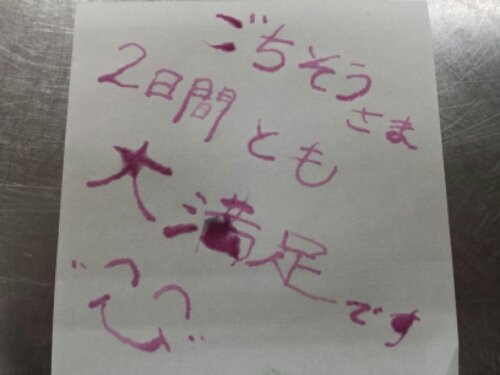 ごちそうさま
2日間とも
大満足です